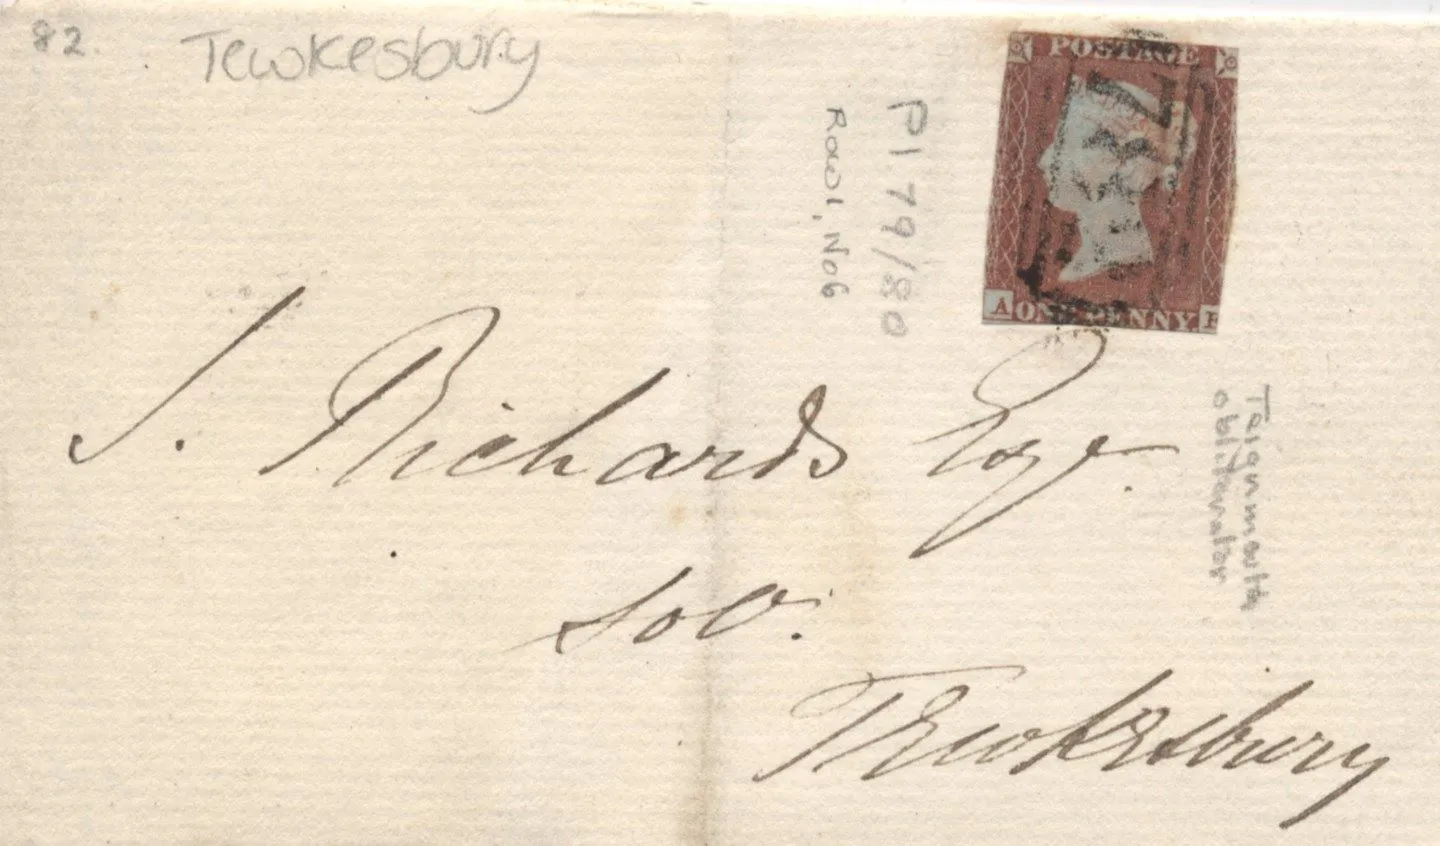 82.
Tewkesbury
Pl 79/80
Row 1, No 6
POSTAGE
A ONE PENNY F
Teignmouth
obliterator
J. Richards Esqr.
Solr.
Tewkesbury